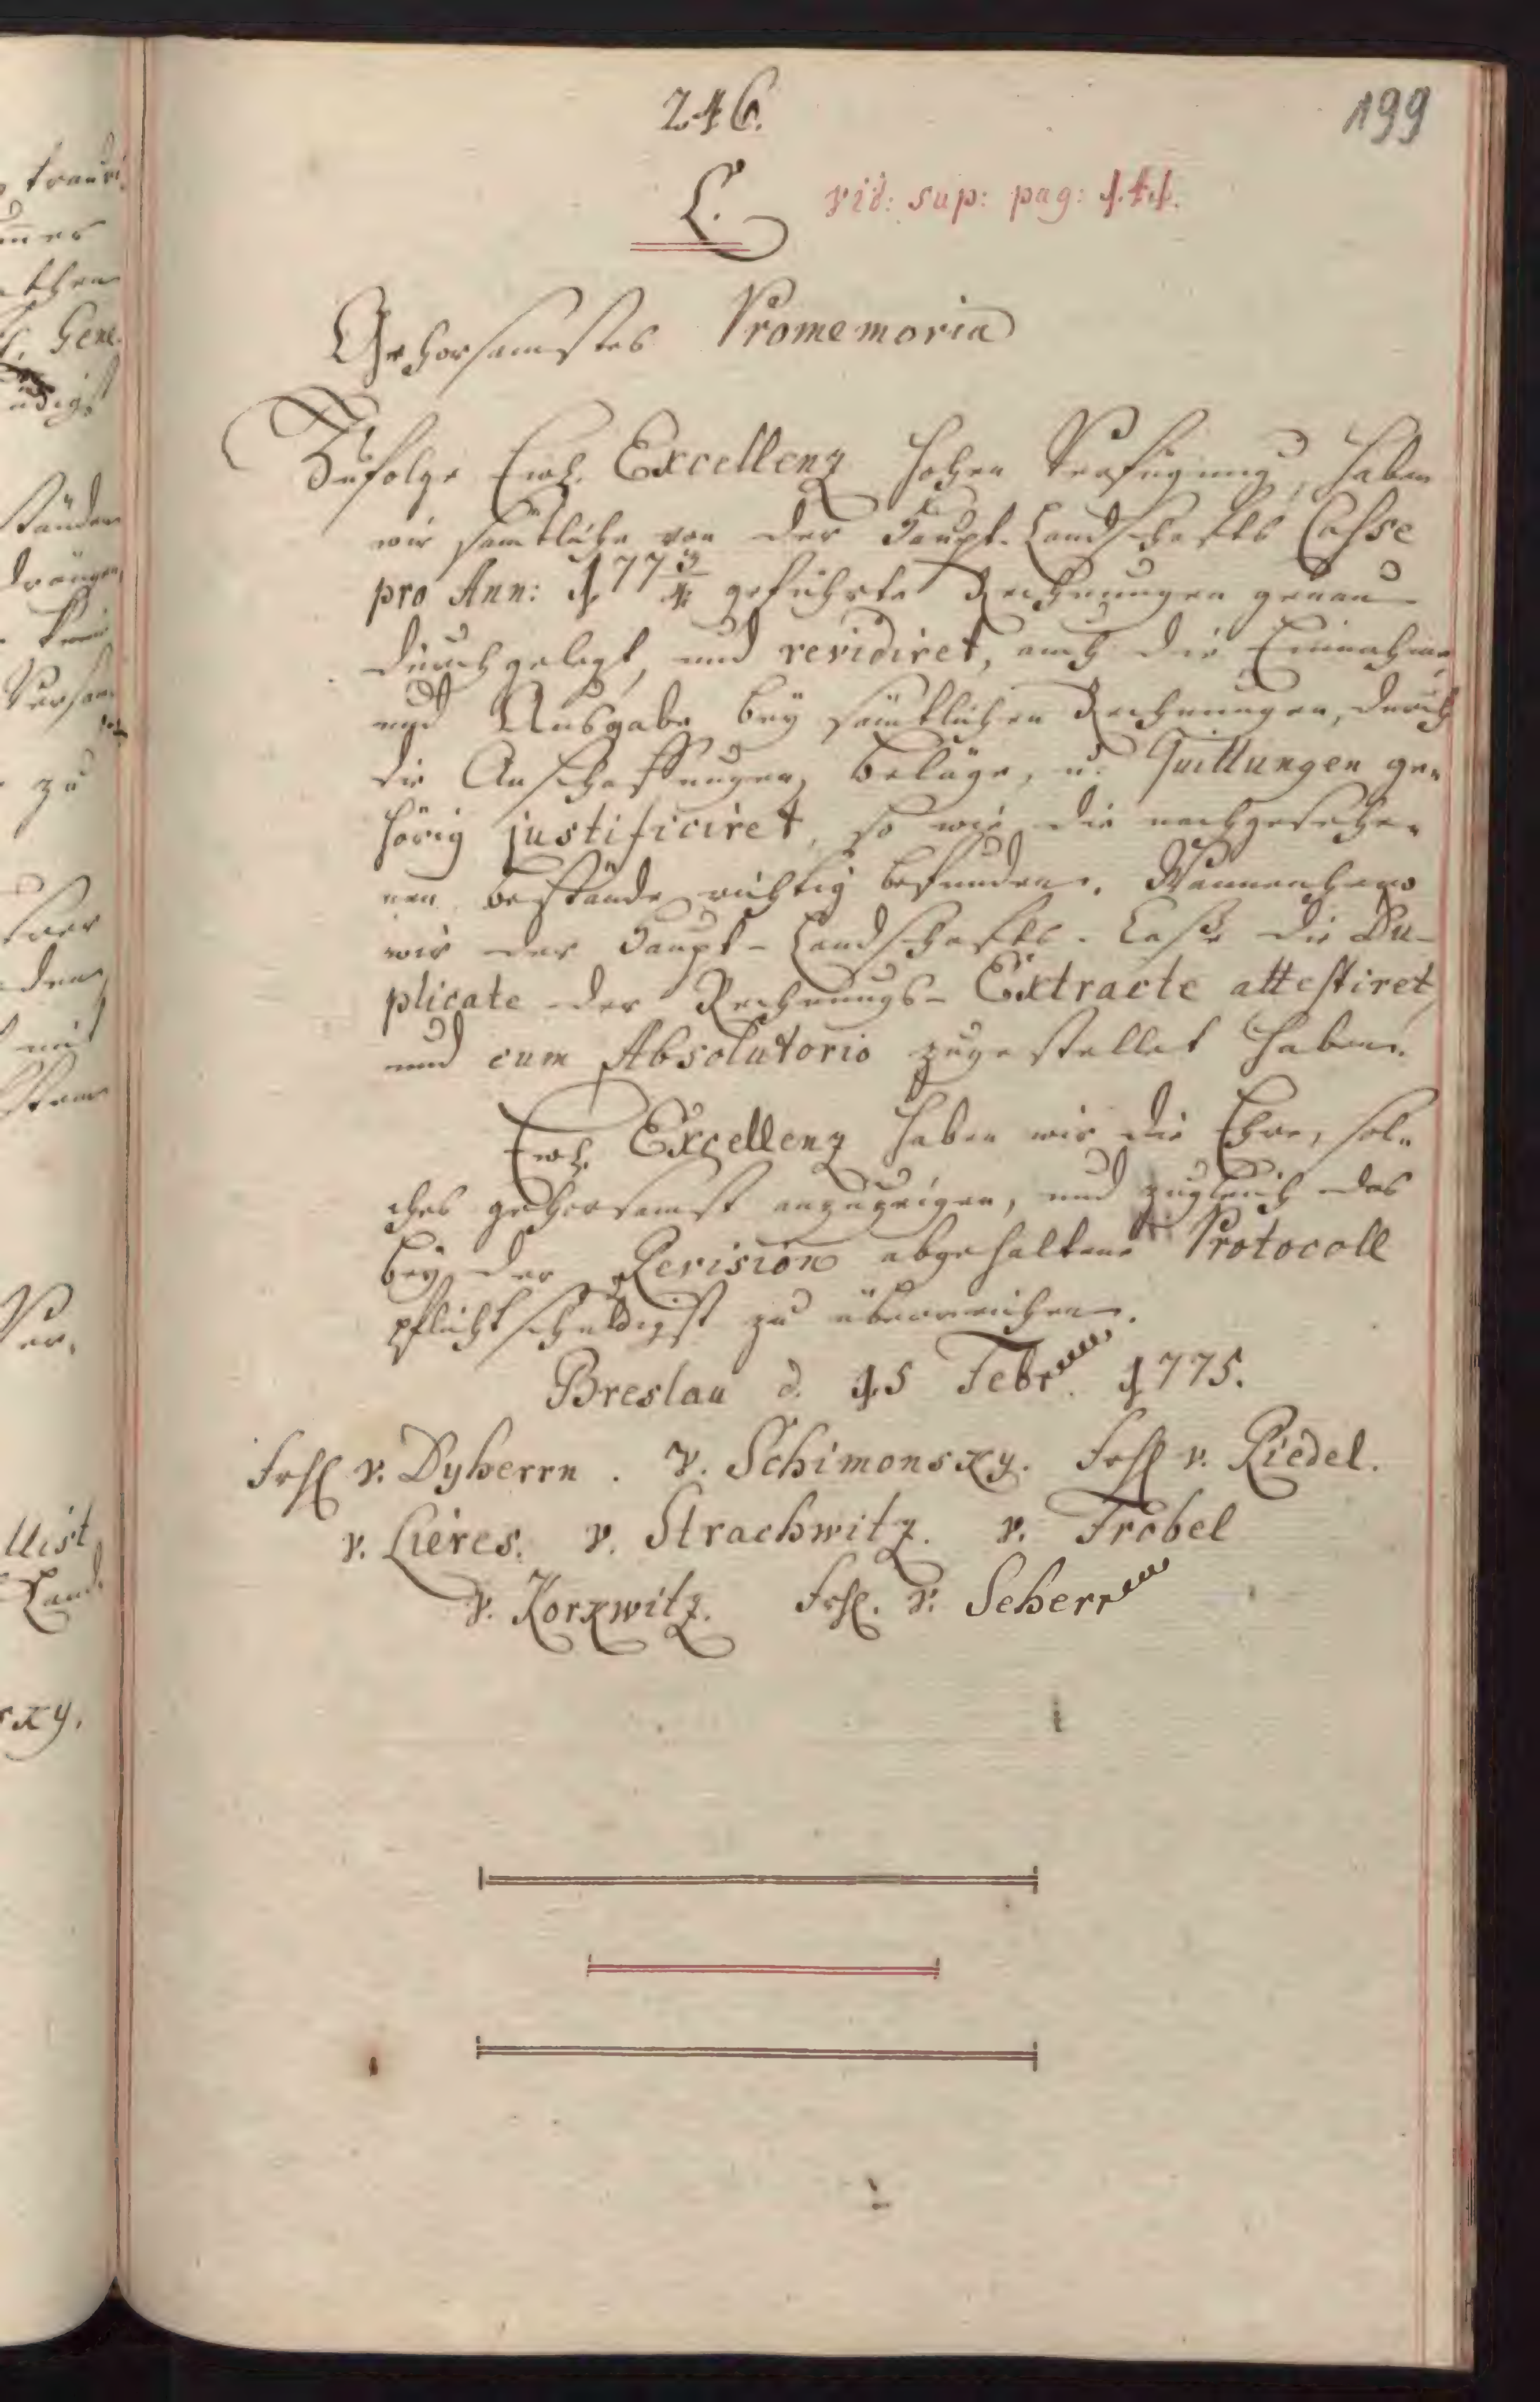 246.
199
L. vid: sup: pag: 141.
Gehorsamstes Promemoria
Zufolge Ewl. Excellenz hohen Verfügung, haben
wir sämtliche von der Haupt-Landschafts Casse
pro Ann: 1773/4 geführte Rechnungen genau
durchgelegt, und revidiret, auch die Einnahme,
und Ausgabe bey sämtlichen Rechnungen, durch
die Anschaffungen, Beläge, u. Quittungen ge-
hörig justificiret, so wie die nachgesehe-
nen Bestände richtig befunden. Wannenhero
wir der Haupt-Landschafts-Caße die Du-
plicate der Rechnungs-Extracte attestiret,
und cum Absolutorio zugestellet haben.
Ewl. Excellenz haben wir die Ehre, sol-
ches gehorsamst anzuzeigen, und zugleich das
bey der Revision abgehaltene Protocoll
pflichtschuldigst zu überreichen.
Breslau d. 15 Febr. 1775.
Frh v. Dyherrn. v. Schimonsky. Frh v. Riedel.
v. Lieres. v. Strachwitz. v. Frobel
v. Korkwitz. Frh. v. Seherr